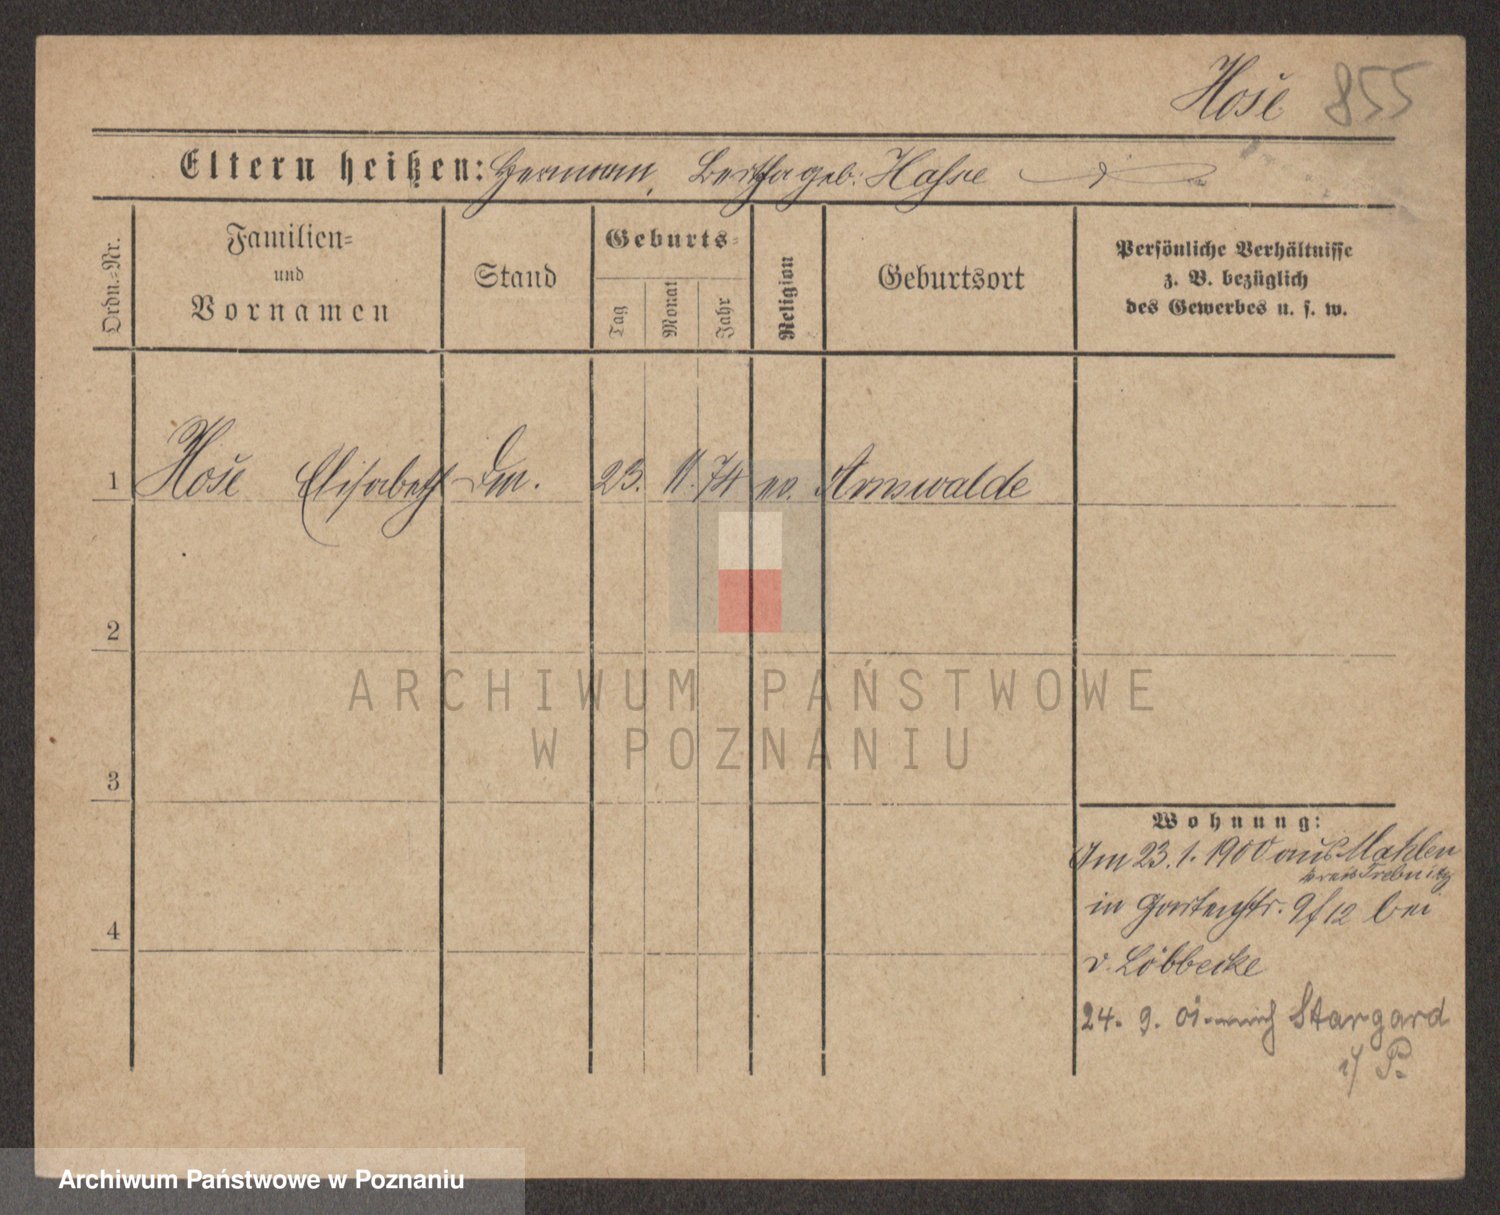 Hose 855
Eltern heißen: Hermann, Bertha geb: Hasse
Ordn.-Nr.
Familien-
und
Vornamen
Stand
Geburts-
Tag
Monat
Jahr
Religion
Geburtsort
Persönliche Verhältnisse
z. B. bezüglich
des Gewerbes u. s. w.
1 Hose Elisabeth 23. 11. 74 ev. Arnswalde
2
3
4
Wohnung:
Am 23.1.1900 aus Mahlen
Kreis Trebnitz
in Gartenstr. 9/12 bei
v. Löbbecke
24. 9. 01. nach Stargard
i/ P.
ARCHIWUM PAŃSTWOWE
W POZNANIU
Archiwum Państwowe w Poznaniu